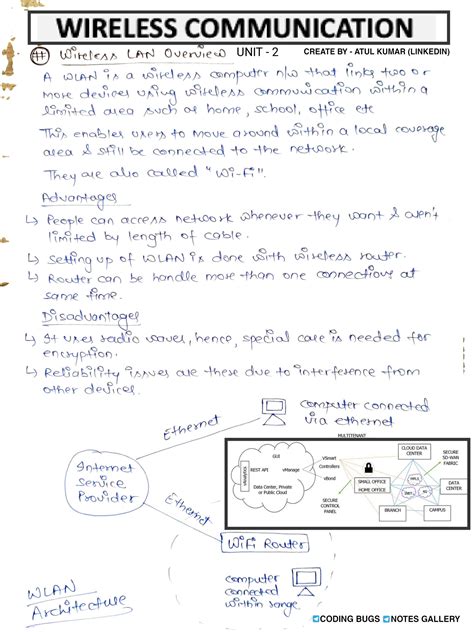 WIRELESS COMMUNICATION
# Wireless LAN Overview UNIT - 2 CREATE BY - ATUL KUMAR (LINKEDIN)
A WLAN is a wireless computer n/w that links two or
more devices using wireless communication within a
limited area such as home, school, office etc
This enables users to move around within a local coverage
area & still be connected to the network.
They are also called "Wi-Fi".
Advantages
↳ People can access network whenever they want & aren't
limited by length of cable.
↳ Setting up of WLAN is done with wireless router.
↳ Router can be handle more than one connections at
same time.
Disadvantages
↳ It uses radio waves, hence, special care is needed for
encryption.
↳ Reliability issues are these due to interference from
other devices.
Ethernet
computer connected
via ethernet
MULTITENANT
GUI
REST API
vManage
vAnalytics
Data Center, Private
or Public Cloud
vSmart
Controllers
vBond
SECURE
CONTROL
PANEL
CLOUD DATA
CENTER
SECURE
SD-WAN
FABRIC
SMALL OFFICE
HOME OFFICE
MPLS
INET
4G
DATA
CENTER
BRANCH
CAMPUS
Internet
Service
Provider
Ethernet
WiFi Router
computer
connected
within range
WLAN
Architecture
CODING BUGS NOTES GALLERY